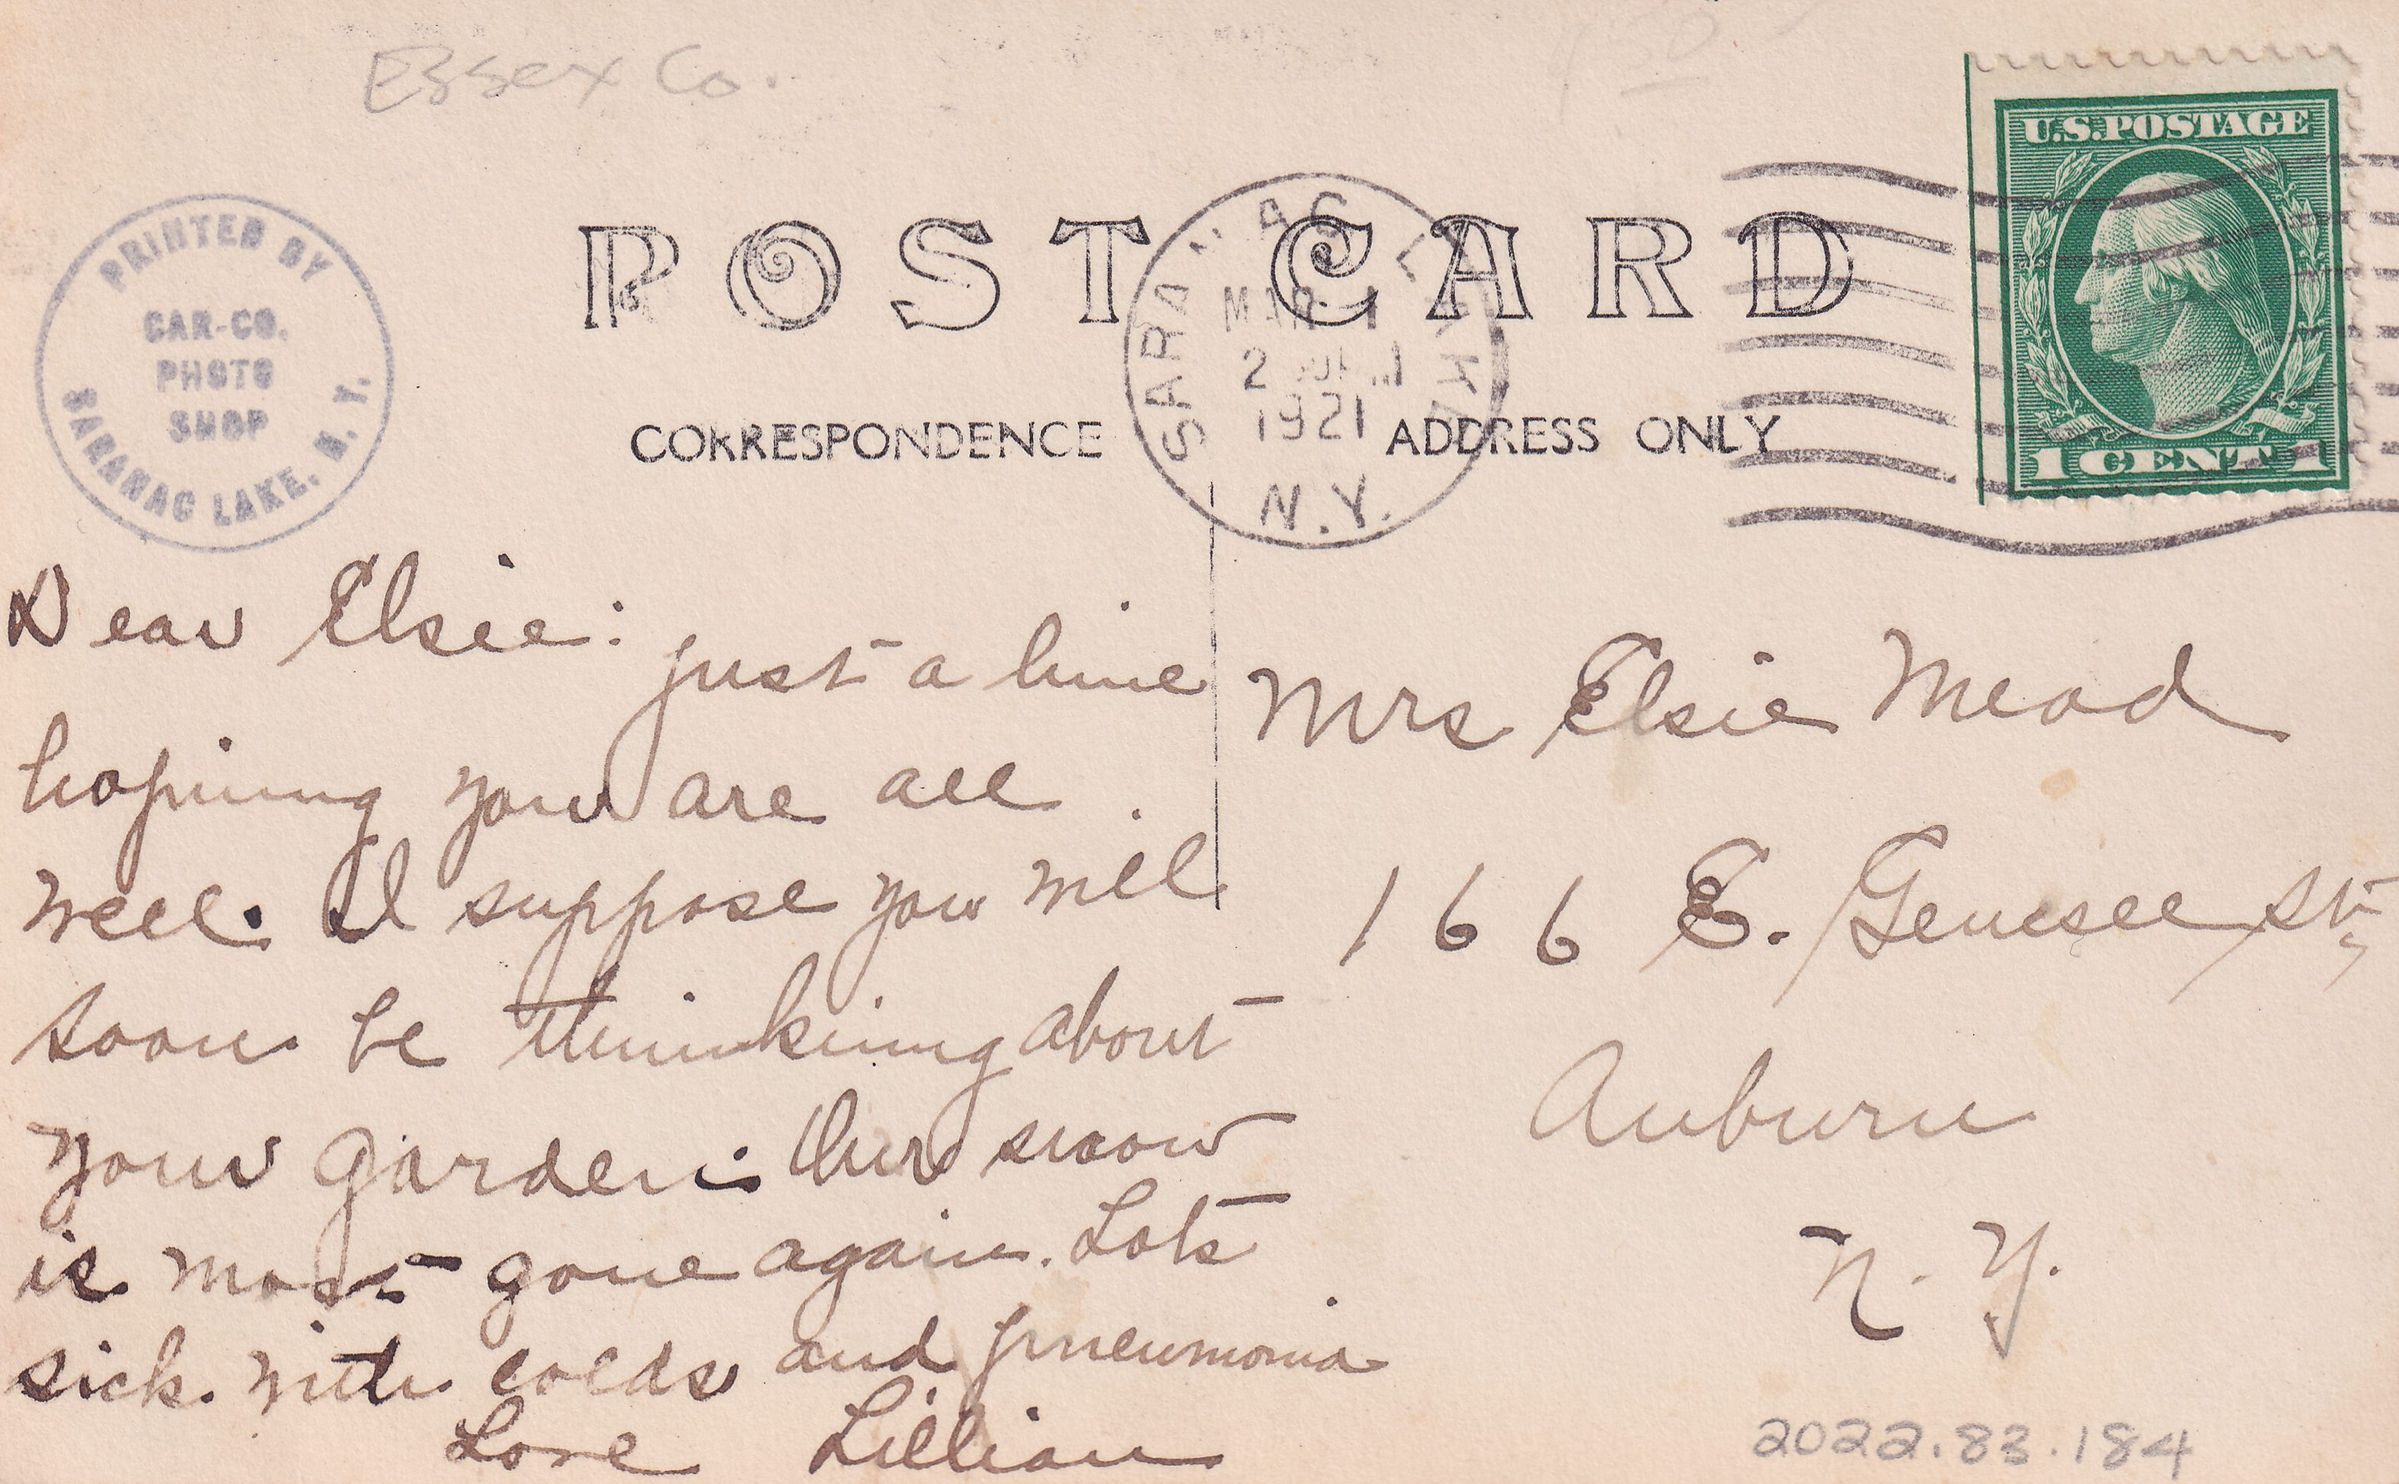 Essex Co.
PRINTED BY
CAR-CO.
PHOTO
SHOP
SARANAC LAKE, N.Y.
POST CARD
CORRESPONDENCE
ADDRESS ONLY
SARANAC LAKE
MAR 1
2
1921
N.Y.
U.S. POSTAGE
1 CENT 1
Dear Elsie: just a line
hoping you are all
well. I suppose you will
soon be thinking about
your garden. Our snow
is most gone again. Lots
sick with colds and pneumonia
Love Lillian
Mrs Elsie Mead
166 E. Genesee St,
Auburn
N.Y.
2022.83.184